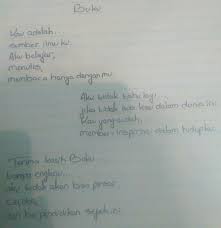 Buku
Kau adalah
sumber ilmu ku
Aku belajar,
menulis,
membaca hanya dengan mu
Aku tidak tahu lagi
jika tidak ada kau dalam dunia ini
Kau yang sudah
memberi inspirasi dalam hidupku
Terima kasih Buku
tanpa engkau
aku tidak akan bisa pintar,
cerdas,
dan ke pendidikan sejauh ini